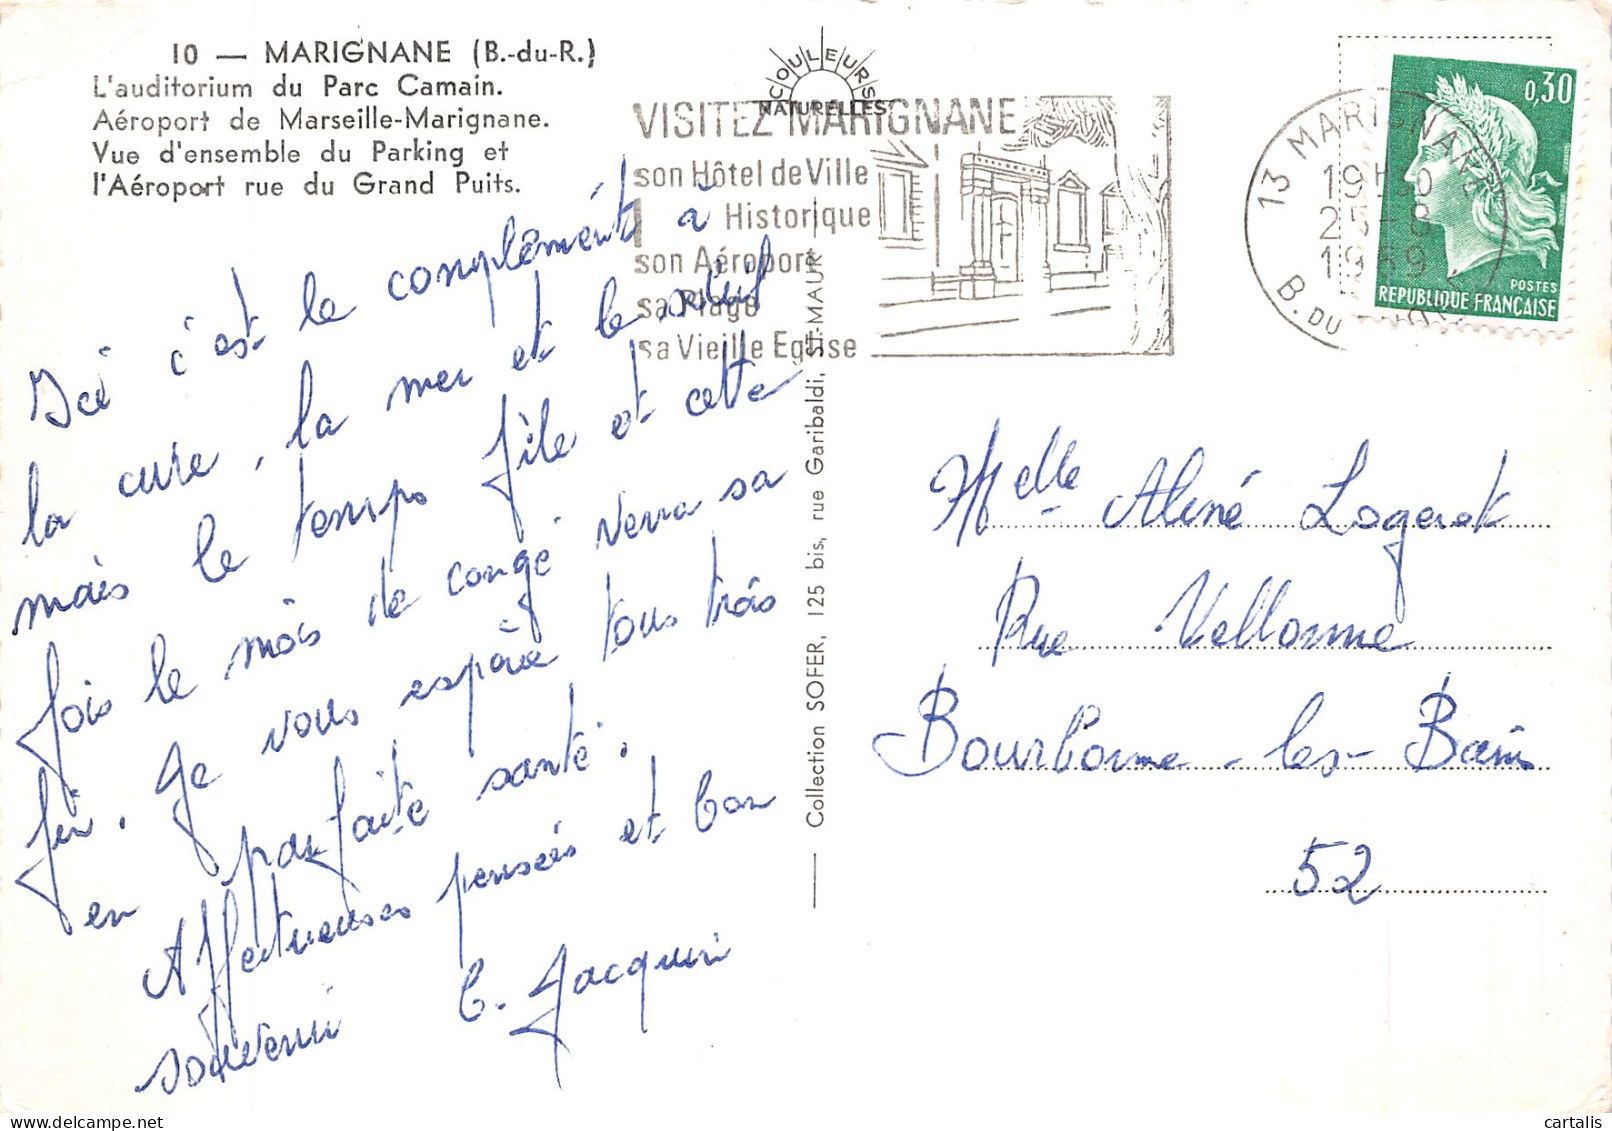 10 — MARIGNANE (B.-du-R.)
L'auditorium du Parc Camain.
Aéroport de Marseille-Marignane.
Vue d'ensemble du Parking et
l'Aéroport rue du Grand Puits.
COULEURS
NATURELLES
VISITEZ MARIGNANE
son Hôtel de Ville
Historique
son Aéroport
sa Plage
sa Vieille Eglise
13 MARIGNANE
25-8
1969
B. DU
0,30
POSTES
REPUBLIQUE FRANÇAISE
Ici c'est le complément à
la cure, la mer et le soleil
mais le temps file et cette
fois le mois de congé verra sa
fin. Je vous espère tous trois
en parfaite santé.
Affectueuses pensées et bon
souvenir C. Jacquin
Collection SOFER, 125 bis, rue Garibaldi, St-MAUR
Melle Aliné Logerot
Rue Vellonne
Bourbonne-les-Bains
52
cartalis